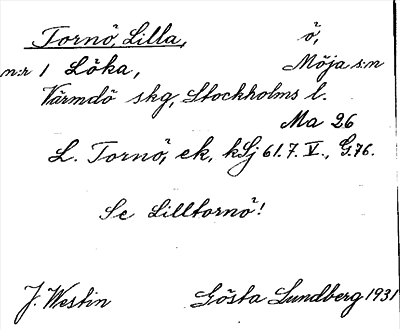 Tornö, Lilla, ö,
n:r 1 Löka, Möja s:n
Värmdö skg, Stockholms l.
Ma 26
L. Tornö, ek, kSj 61.7. V., G.76.
Se Lilltornö!
J. Westin Gösta Lundberg 1931